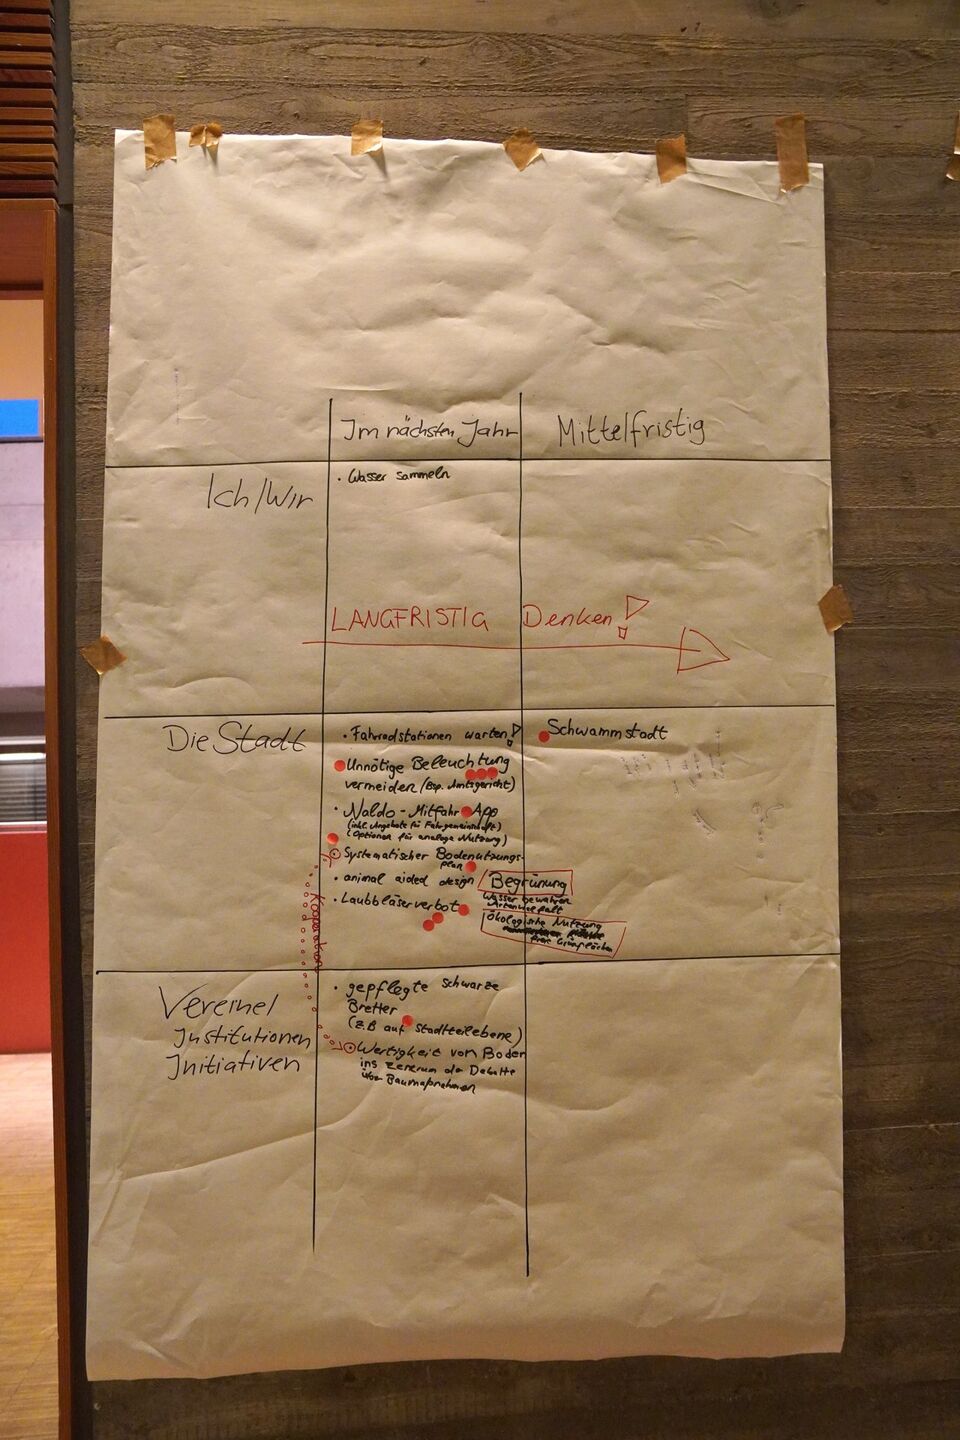 Im nächsten Jahr
Mittelfristig
Ich/Wir
· Wasser sammeln
LANGFRISTIG Denken!
Die Stadt
· Fahrradstationen warten!
Unnötige Beleuchtung
vermeiden (Bsp. Amtsgericht)
· Naldo-Mitfahr-App
(inkl. Angebote für Fahrgemeinschaft)
(Optionen für analoge Nutzung)
Systematischer Bodennutzungs-
plan
· animal aided design
· Laubbläserverbot
Schwammstadt
Begrünung
Wasser bewahren
Artenvielfalt
Ökologische Nutzung
Grünflächen
Kooperation
Vereine/
Institutionen
Initiativen
· gepflegte schwarze
Bretter
(z.B auf Stadtteilebene)
Wertigkeit von Boden
ins Zentrum der Debatte
über Baumaßnahmen